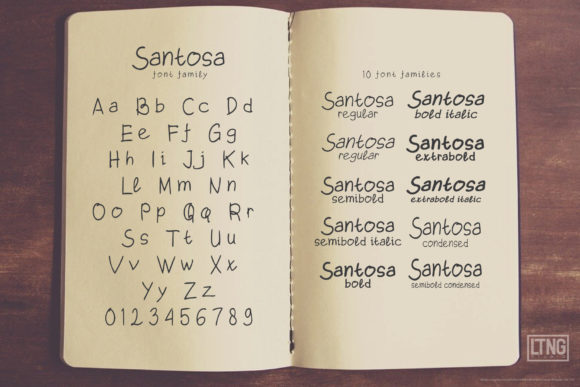 Santosa
font family
Aa Bb Cc Dd
Ee Ff Gg
Hh Ii Jj Kk
Ll Mm Nn
Oo Pp Qq Rr
Ss Tt Uu
Vv Ww Xx
Yy Zz
0123456789
10 font families
Santosa
regular
Santosa
regular
Santosa
semibold
Santosa
semibold italic
Santosa
bold
Santosa
bold italic
Santosa
extrabold
Santosa
extrabold italic
Santosa
condensed
Santosa
semibold condensed
LTNG